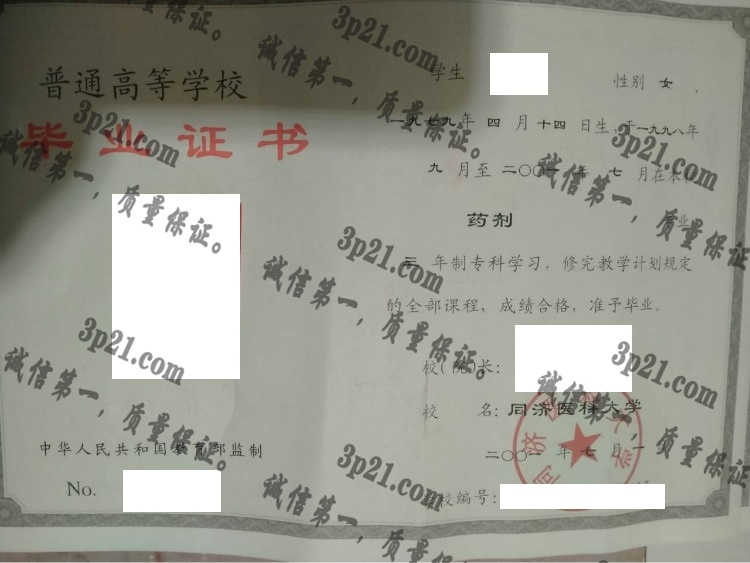 普通高等学校
毕业证书
中华人民共和国教育部监制
No.
学生 性别 女 ,
一九七九年 四 月 十四 日生,于一九九八年
九 月至 二〇〇一 年 七 月在本校
药剂 业
三 年制专科学习,修完教学计划规定
的全部课程,成绩合格,准予毕业。
校(院)长:
校 名:同济医科大学
二〇〇一 年 七 月 一
校编号:
3p21.com
诚信第一,质量保证。
3p21.com
诚信第一,质量保证。
3p21.com
诚信第一,质量保证。
3p21.com
诚信第一,质量保证。
3p21.com
诚信第一,质量保证。
3p21.com
诚信第一,质量保证。
3p21.com
诚信第一,质量保证。
3p21.com
诚信第一,质量保证。